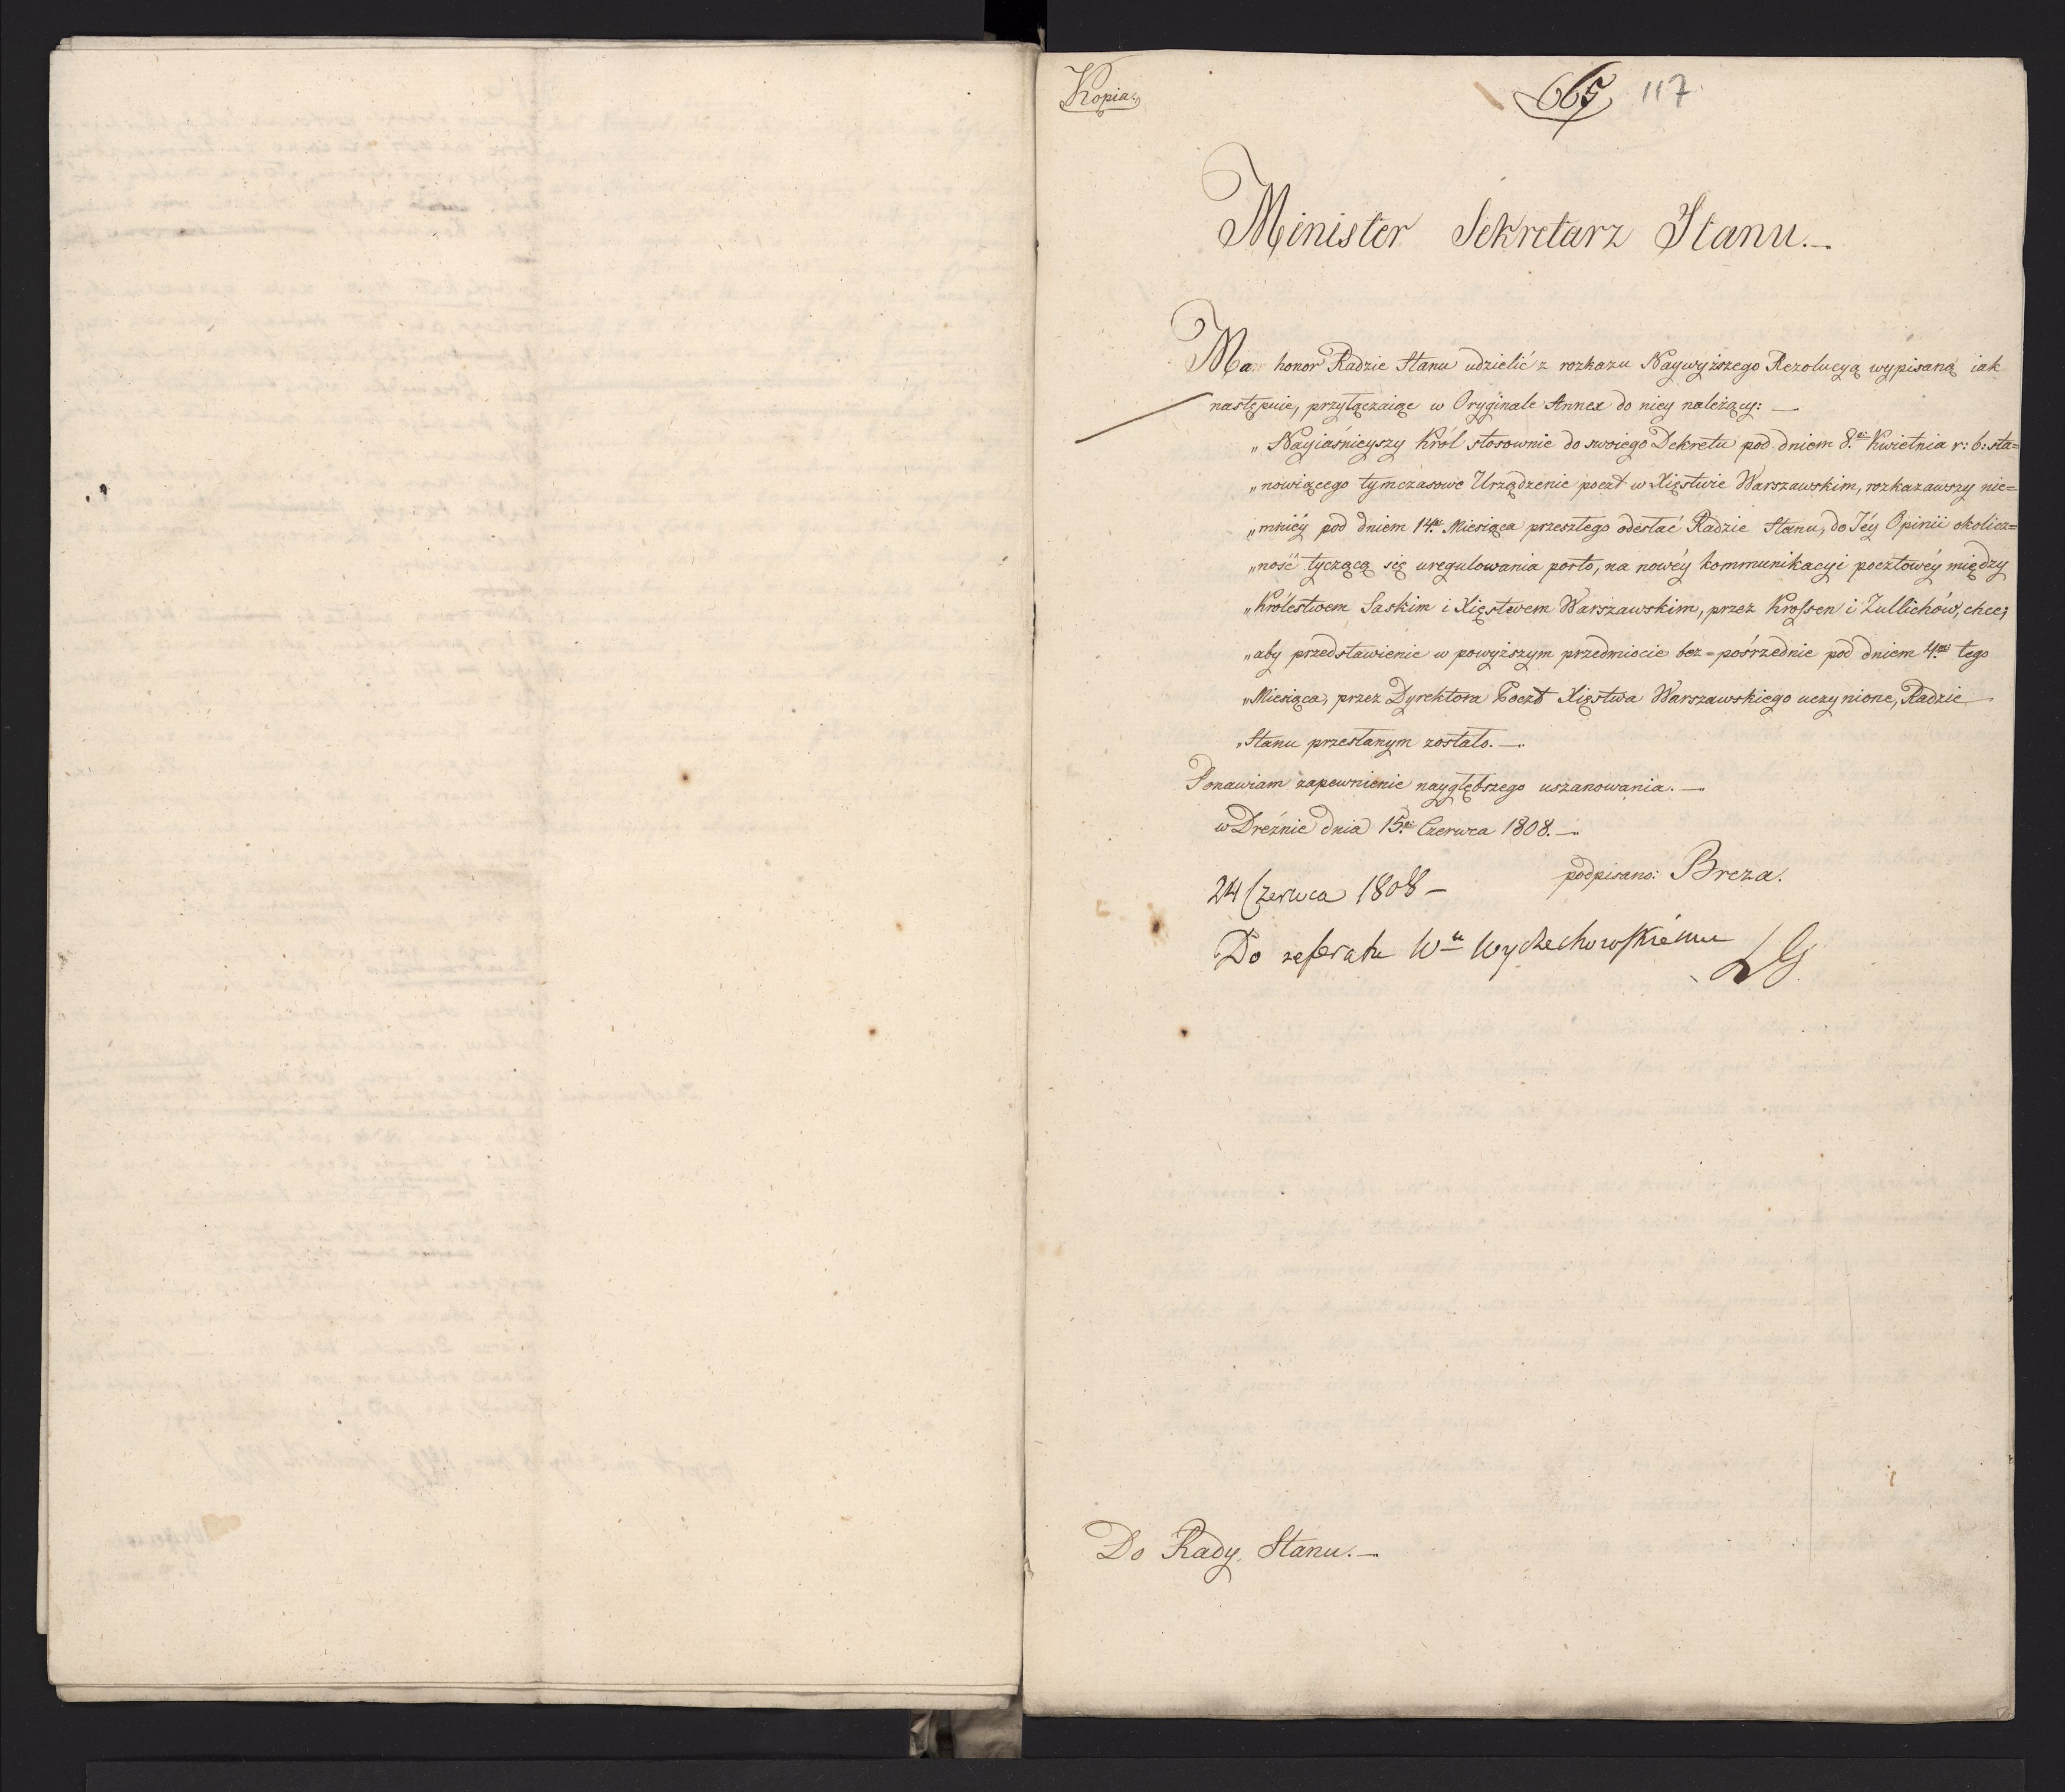 Kopia.
665 117
Minister Sekretarz Stanu.—
Ma honor Radzie Stanu udzielić z rozkazu Naywyższego Rezolucyą wypisaną iak
następuie, przyłączaiąc w Oryginale Annex do niey należący:—
„Nayiaśnieyszy Król stosownie do swoiego Dekretu pod dniem 8. Kwietnia r: b: sta=
„nowiącego tymczasowe Urządzenie poczt w Xięstwie Warszawskim, rozkazawszy nie=
„mniéy pod dniem 14. Miesiąca przeszłego odesłać Radzie Stanu, do Iéy Opinii okolicz=
„ność tyczącą się uregulowania porto, na nowéy kommunikacyi pocztowéy między
„Królestwem Saskim i Xięstwem Warszawskim, przez Krossen i Zullichów, chce;
„aby przedstawienie w powyższym przedmiocie bez=pośrzednie pod dniem 4. tego
„Miesiąca, przez Dyrektora Poczt Xięstwa Warszawskiego uczynione, Radzie
„Stanu przesłanym zostało.—
Ponawiam zapewnienie naygłębszego uszanowania.—
w Dreźnie dnia 15. Czerwca 1808.—
podpisano: Breza.
24 Czerwca 1808—
Do referatu Wu Wyczechowskiému
LG
Do Rady Stanu.—